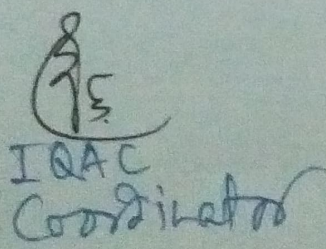 IQAC
Coordinator